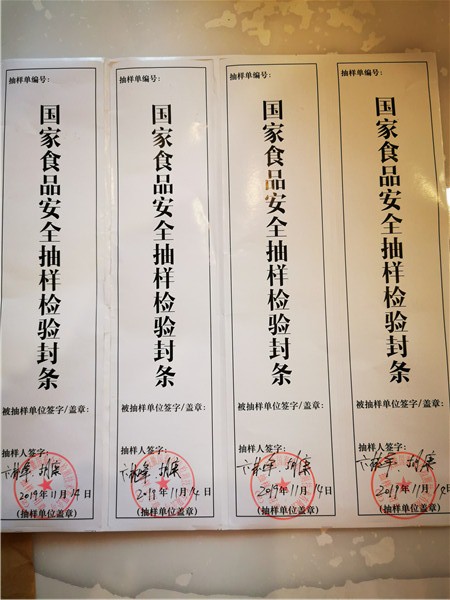 抽样单编号:
国家食品安全抽样检验封条
被抽样单位签字/盖章:
抽样人签字:
2019年11月14日
(抽样单位盖章)
抽样单编号:
国家食品安全抽样检验封条
被抽样单位签字/盖章:
抽样人签字:
2019年11月14日
(抽样单位盖章)
抽样单编号:
国家食品安全抽样检验封条
被抽样单位签字/盖章:
抽样人签字:
2019年11月14日
(抽样单位盖章)
抽样单编号:
国家食品安全抽样检验封条
被抽样单位签字/盖章:
抽样人签字:
2019年11月
(抽样单位盖章)